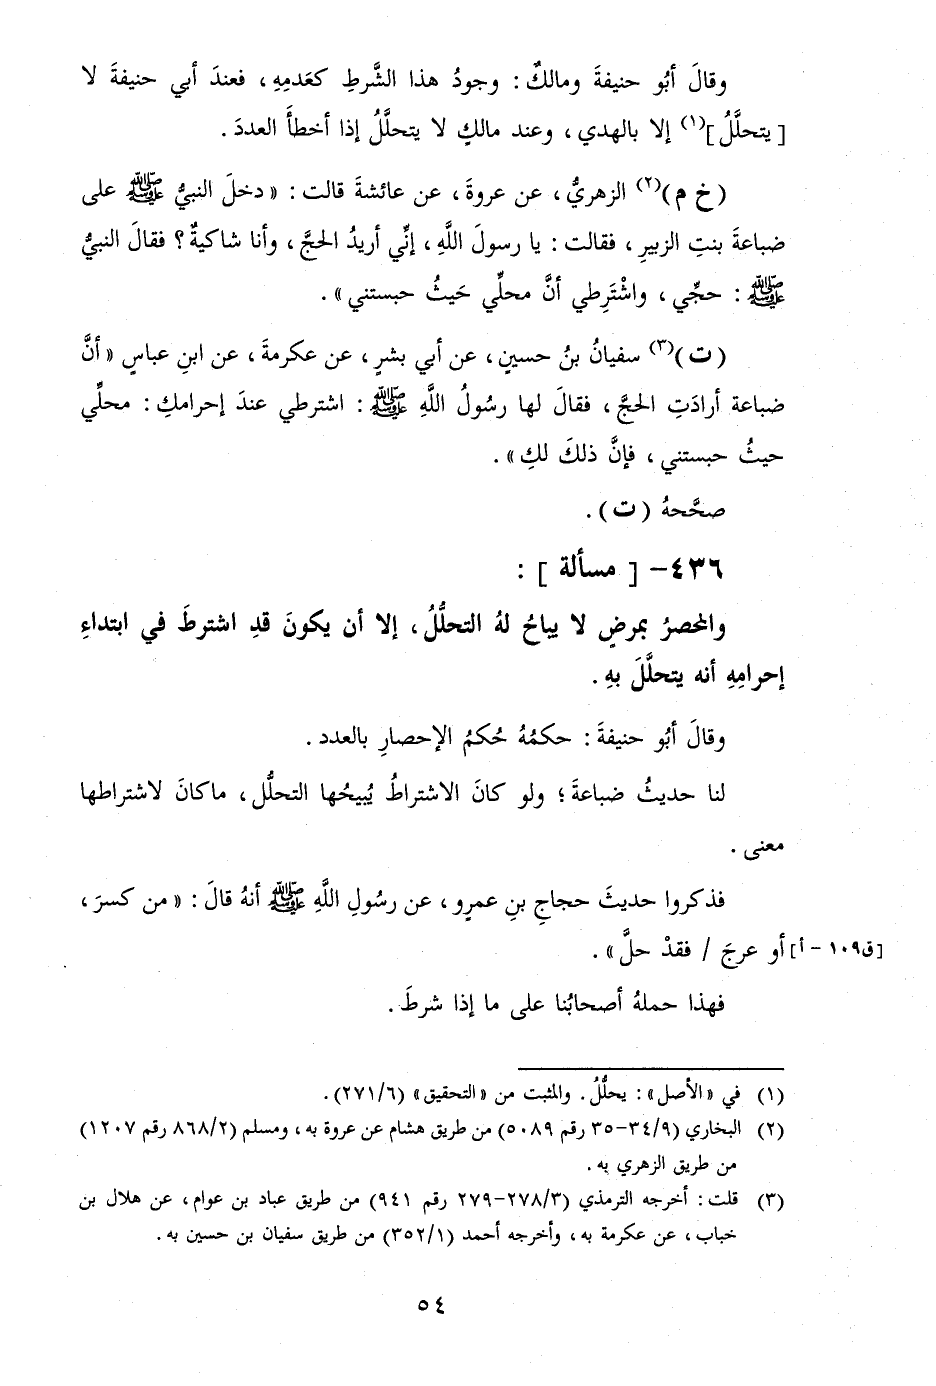 وقالَ أبُو حنيفةَ ومالكٌ : وجودُ هذا الشَّرطِ كعَدمِهِ ، فعندَ أبي حنيفةَ لا
[ يتحلَّلُ ](١) إلا بالهدي ، وعند مالكٍ لا يتحلَّلُ إذا أخطأَ العددَ .
( خ م )(٢) الزهريُّ ، عن عروةَ ، عن عائشةَ قالت : « دخلَ النبيُّ ﷺ على
ضباعةَ بنتِ الزبيرِ ، فقالت : يا رسولَ اللَّهِ ، إنِّي أريدُ الحجَّ ، وأنا شاكيةٌ ؟ فقالَ النبيُّ
ﷺ : حجِّي ، واشْتَرِطي أنَّ محلِّي حَيثُ حبستني » .
( ت )(٣) سفيانُ بنُ حسينٍ ، عن أبي بشرٍ ، عن عكرمةَ ، عن ابنِ عباسٍ « أنَّ
ضباعة أرادَتِ الحجَّ ، فقالَ لها رسُولُ اللَّهِ ﷺ : اشترطي عندَ إحرامكِ : محلِّي
حيثُ حبستني ، فإنَّ ذلكَ لكِ » .
صحَّحهُ ( ت ) .
٤٣٦- [ مسألة ] :
والمحصرُ بمرضٍ لا يباحُ لهُ التحلُّلُ ، إلا أن يكونَ قدِ اشترطَ في ابتداءِ
إحرامِهِ أنه يتحلَّلَ بهِ .
وقالَ أبُو حنيفةَ : حكمُهُ حُكمُ الإحصارِ بالعدد .
لنا حديثُ ضباعةَ ؛ ولو كانَ الاشتراطُ يُبيحُها التحلُّل ، ماكانَ لاشتراطها
معنى .
فذكروا حديثَ حجاجِ بنِ عمرٍو ، عن رسُولِ اللَّهِ ﷺ أنهُ قالَ : « من كسرَ ،
[ق١٠٩ - أ] أو عرجَ / فقدْ حلَّ » .
فهذا حملهُ أصحابُنا على ما إذا شرطَ .
(١) في « الأصل » : يحلُّلُ . والمثبت من « التحقيق » (٢٧١/٦) .
(٢) البخاري (٣٤/٩-٣٥ رقم ٥٠٨٩) من طريق هشام عن عروة به ، ومسلم (٨٦٨/٢ رقم ١٢٠٧)
من طريق الزهري به .
(٣) قلت : أخرجه الترمذي (٢٧٨/٣-٢٧٩ رقم ٩٤١) من طريق عباد بن عوام ، عن هلال بن
خباب ، عن عكرمة به ، وأخرجه أحمد (٣٥٢/١) من طريق سفيان بن حسين به .
٥٤